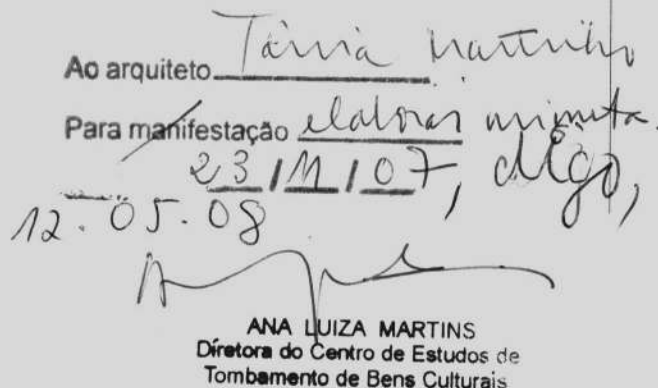 Ao arquiteto Tânia Martinho
Para manifestação elaborar minuta.
23/11/07, digo,
12.05.08
ANA LUIZA MARTINS
Diretora do Centro de Estudos de
Tombamento de Bens Culturais